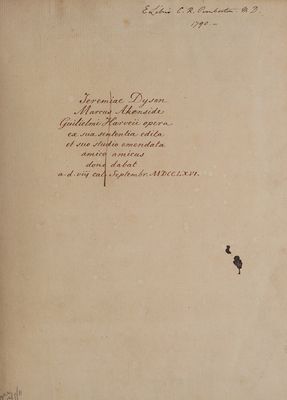 Ex Libris C. R. Pemberton M.D.
1790.—
Jeremiae Dyson
Marcus Akenside
Guilielmi Harveii opera
ex sua sententia edita
et suo studio emendata
amico amicus
dono dabat
a.d. viij cal. Septembr. MDCCLXVI.